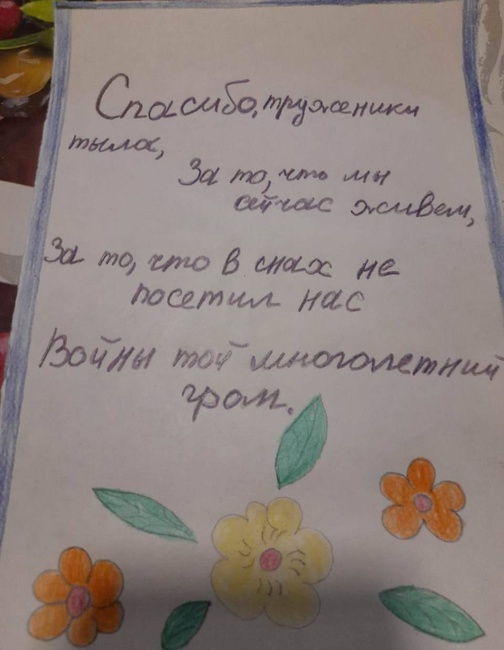 Спасибо, труженики
тыла,
За то, что мы
сейчас живем,
За то, что в снах не
посетил нас
Войны той многолетний
гром.